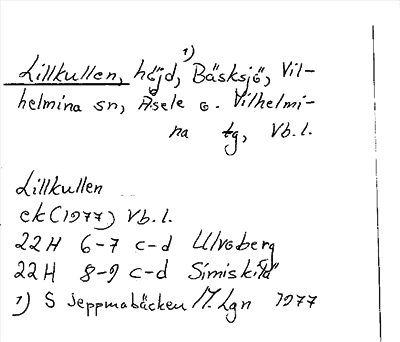 Lillkullen, höjd, 1) Bäsksjö, Vil-
helmina sn, Åsele o. Vilhelmi-
na tg, Vb.l.
Lillkullen
ek (1977) Vb.l.
22H 6-7 c-d Ulvoberg
22H 8-9 c-d Simiskilä
1) S Jeppmabäcken M. Lgn 1977